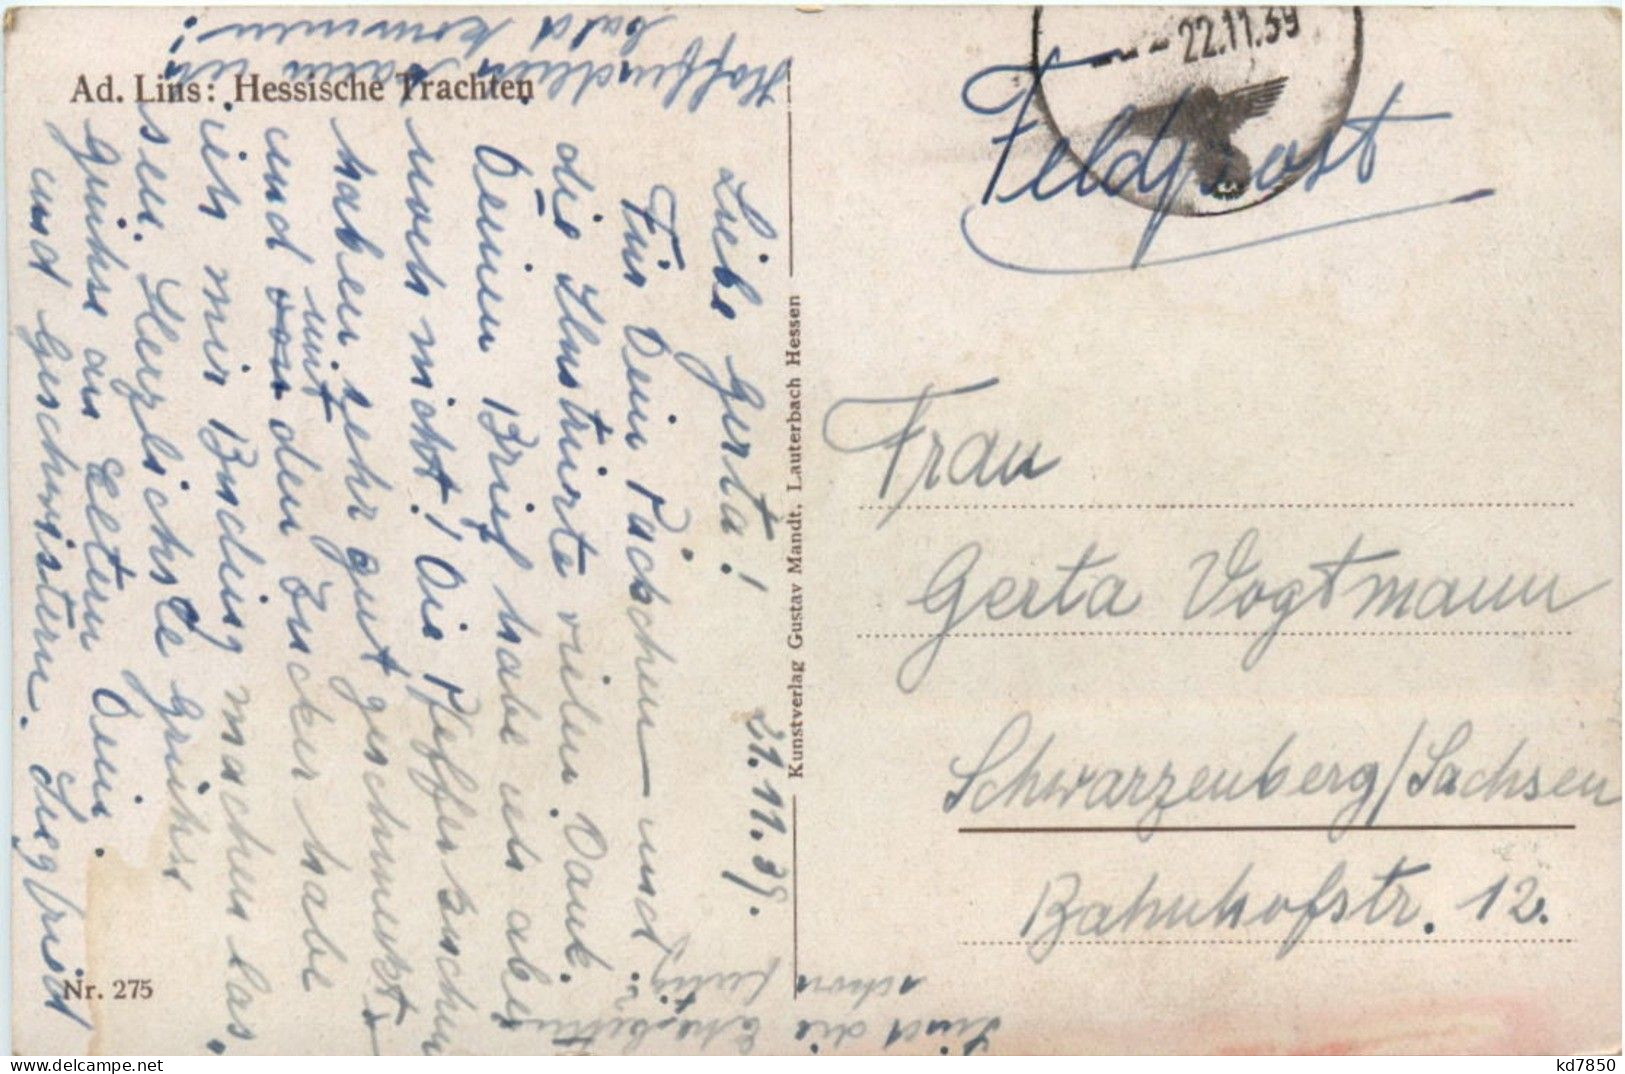 Ad. Lins: Hessische Trachten
21.11.39.
Liebe Gerta!
Für Dein Päckchen und
die Illustrirte vielen Dank.
Deinen Brief habe ich aber
noch nicht! Die Pfefferkuchen
haben sehr gut geschmeckt
und von den Zucker habe
mit
ich mir Pudding machen las-
sen. Herzlichste Grüße
Grüße an Eltern Dein.
und Geschwistern. Siegfried
Hoffendlich kann ich
bald kommen!
Sind die
schon fertig
Kunstverlag Gustav Mandt, Lauterbach Hessen
Nr. 275
22.11.39
Feldpost
Frau
Gerta Vogtmann
Schwarzenberg/Sachsen
Bahnhofstr. 12.
kd7850